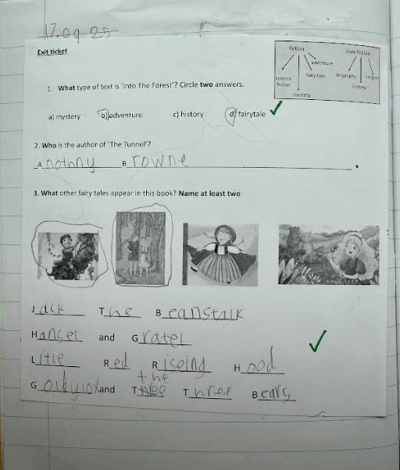 17.09.25
Exit ticket
fiction
non-fiction
adventure
science fiction
fairy tale
biography
history
mystery
1. What type of text is 'Into The Forest'? Circle two answers.
a) mystery b) adventure c) history d) fairytale
2. Who is the author of 'The Tunnel'?
Anothny Browne.
3. What other fairy tales appear in this book? Name at least two
Jack The Beanstalk
Hancel and Gratel
Little Red Riseing Hood
the
Three Bears